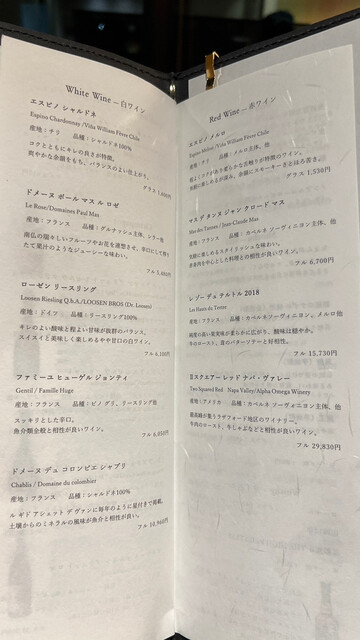 White Wine – 白ワイン
エスピノ シャルドネ
Espino Chardonnay /Viña William Févre Chile
産地：チリ　品種：シャルドネ100%
コクとともにキレの良さが特徴。
爽やかな余韻をもち、バランスのよい仕上がり。
グラス 1,
ドメーヌ ポール マス ル ロゼ
Le Rose/Domaines Paul Mas
産地：フランス　品種：グルナッシュ主体、シラー他
南仏の瑞々しいフルーツやお花を連想させ、辛口にして採り
たて果汁のようなジューシーな味わい。
フル 5,
ローゼン リースリング
Loosen Riesling Q.b.A/LOOSEN BROS (Dr. Loosen)
産地：ドイツ　品種：リースリング100%
キレのよい酸味と程よい甘味が抜群のバランス。
スイスイと美味しく楽しめるやや甘口の白ワイン。
フル 6,
ファミーユ ヒューゲル ジョンティ
Gentil / Famille Hugel
産地：フランス　品種：ピノ グリ、リースリング他
スッキリとした辛口。
魚介類全般と相性が良いワイン。
フル 6,
ドメーヌ デュ コロンビエ シャブリ
Chablis / Domaine du colombier
産地：フランス　品種：シャルドネ100%
ル ギド アシェット デ ヴァンに毎年のように星付きで掲載。
土壌からのミネラルの風味が魚介と相性が良い。
フル 10,960円
Red Wine – 赤ワイン
エスピノ メルロ
Espino Merlot /Viña William Févre Chile
産地：チリ　品種：メルロ主体、他
濃密な
グラス 1,530円
マス デ タンヌ ジャン クロード マス
Mas des Tannes / Jean Claude Mas
産地：フランス　品種：カベルネ ソーヴィニヨン主体、他
芳醇に楽しめるスタイリッシュな味わい。
赤身肉を中心とした料理との相性が良いワイン。
フル 6,700円
レ ゾー デュ テルトル 2018
Les Hauts du Tertre
産地：フランス　品種：カベルネソーヴィニヨン、メルロ他
純度の高い果実味が柔らかに広がり、酸味は穏やか。
牛のロースト、茸のバターソテーと好相性。
フル 15,730円
Two Squared Red　Napa Valley/Alpha Omega Winery
産地：アメリカ　品種：カベルネ ソーヴィニヨン主体、他
最高級が集うラザフォード地区のワイナリー。
牛肉のロースト、牛しゃぶなどと相性が良いワイン。
フル 29,830円